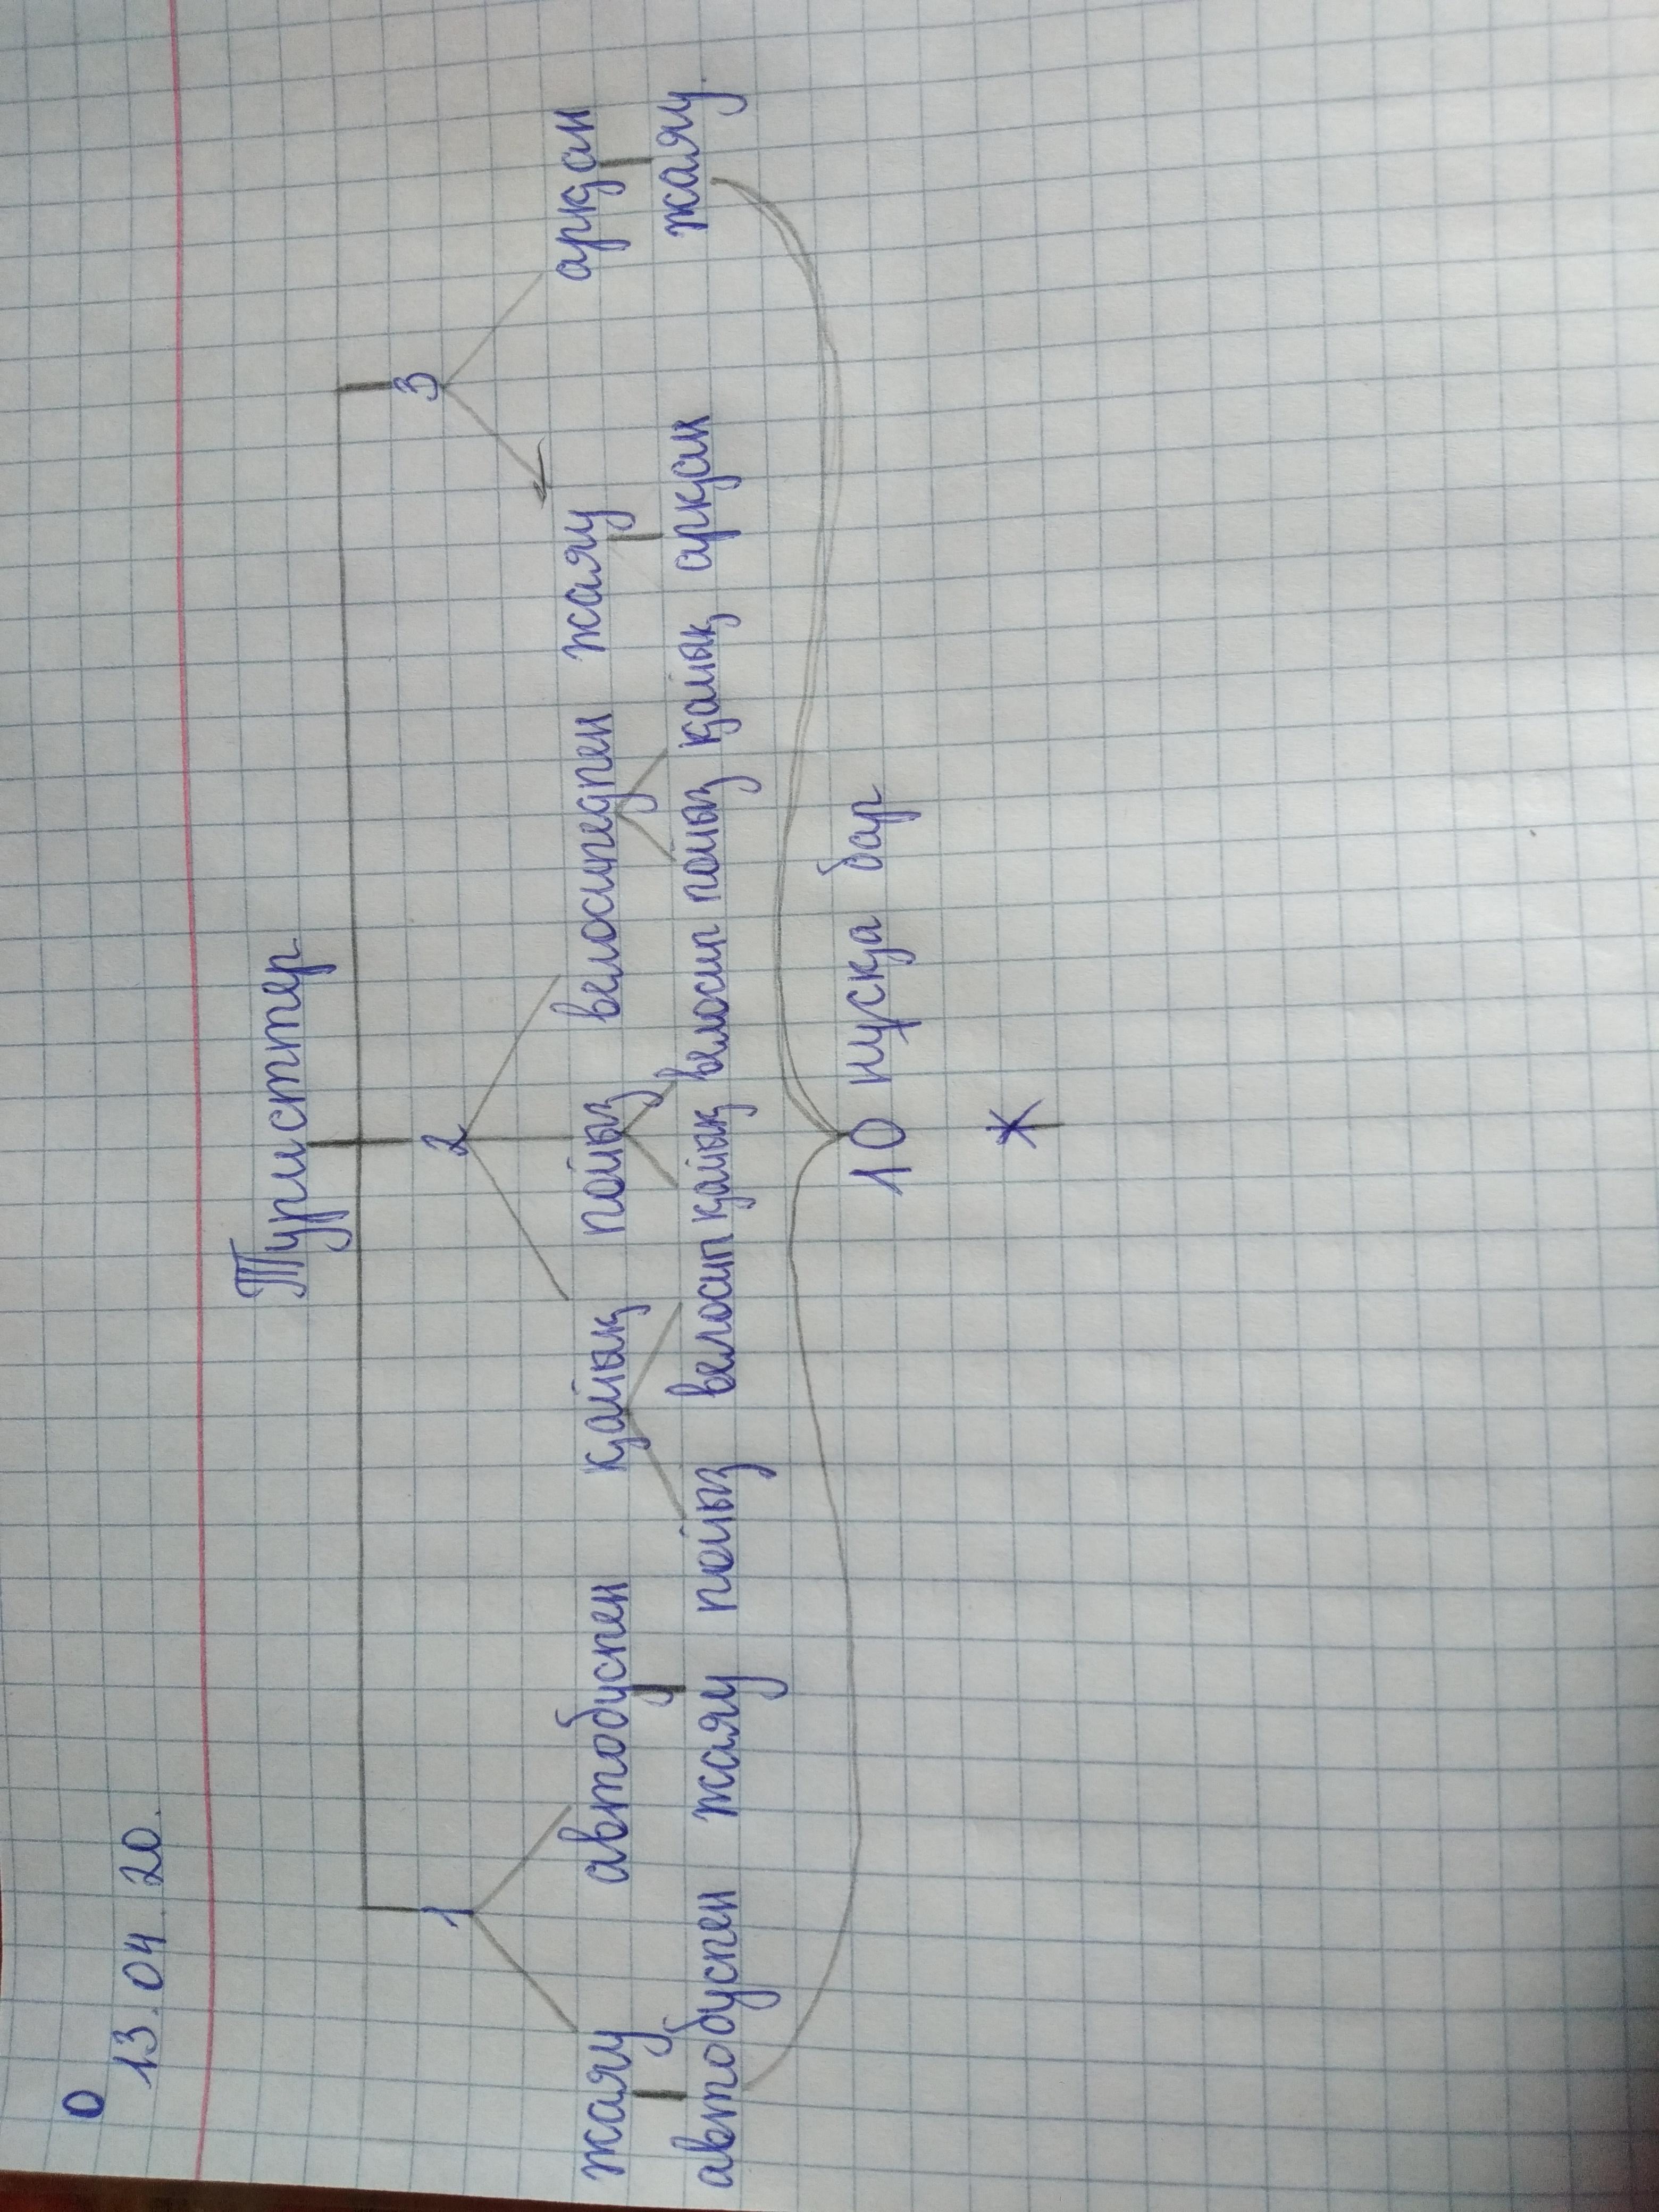 0
13.04.20.
Туристтер
1 2 3
жаяу автобуспен қайық пойыз велосипедпен жаяу арқан
автобуспен жаяу пойыз велосип қайық велосип пойыз қайық арқан жаяу
10 нұсқа бар
Ж